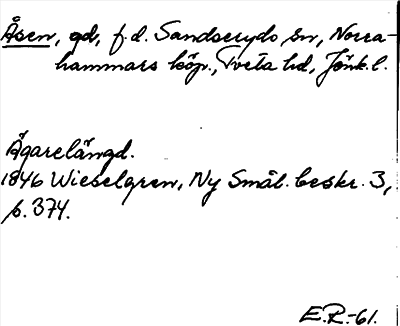 Åsen, gd, f.d. Sandseryds sn, Norra-
hammars köp., Tveta hd, Jönk.l.
Ägarelängd.
1846 Wieselgren, Ny Smål. beskr. 3,
s. 374.
E.R.-61.